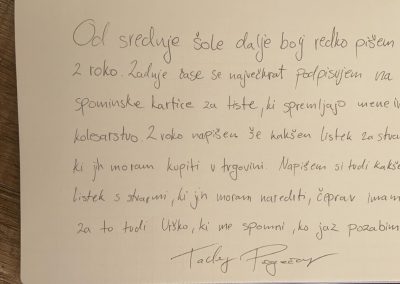 Od srednje šole dalje bolj redko pišem
z roko. Zadnje čase se največkrat podpisujem na
spominske kartice za tiste, ki spremljajo mene in
kolesarstvo. Z roko napišem še kakšen listek za stvari
ki jih moram kupiti v trgovini. Napišem si tudi kakše
listek s stvarmi, ki jih moram narediti, čeprav imam
za to tudi Urško, ki me spomni, ko jaz pozabim
Tadej Pogačar